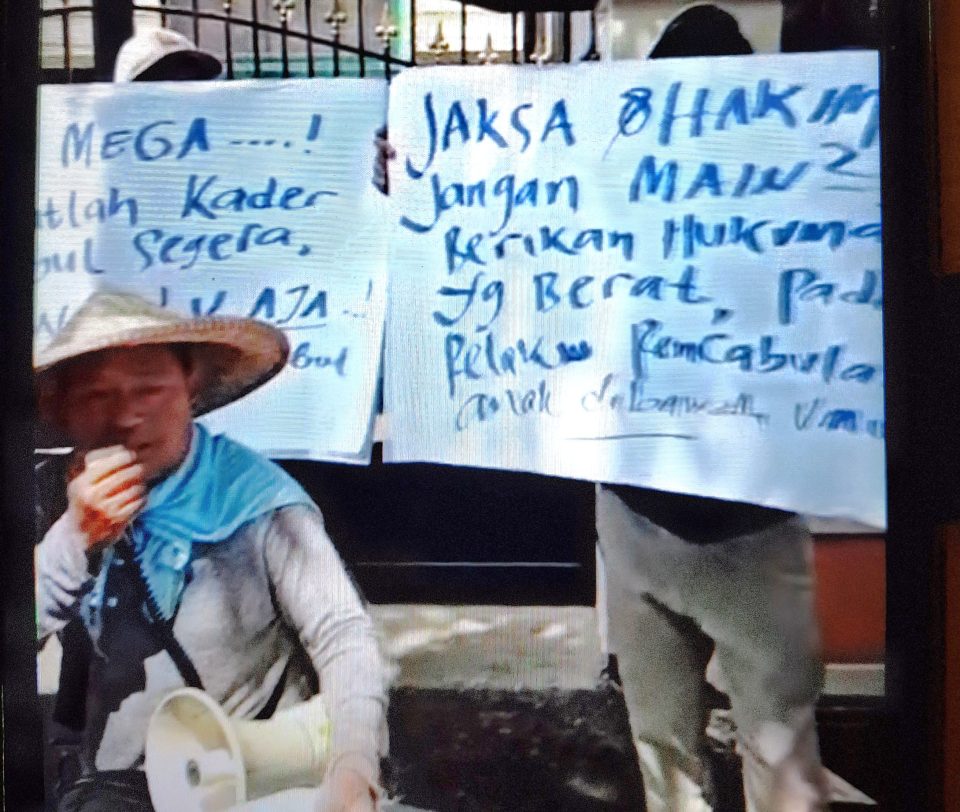 MEGA ....!
Kader
Segera,
AJA ..!
JAKSA & HAKIM
Jangan MAIN2
Berikan Hukuma
yg Berat, Pad
Pelaku Pemcabula
anak dibawah Umu